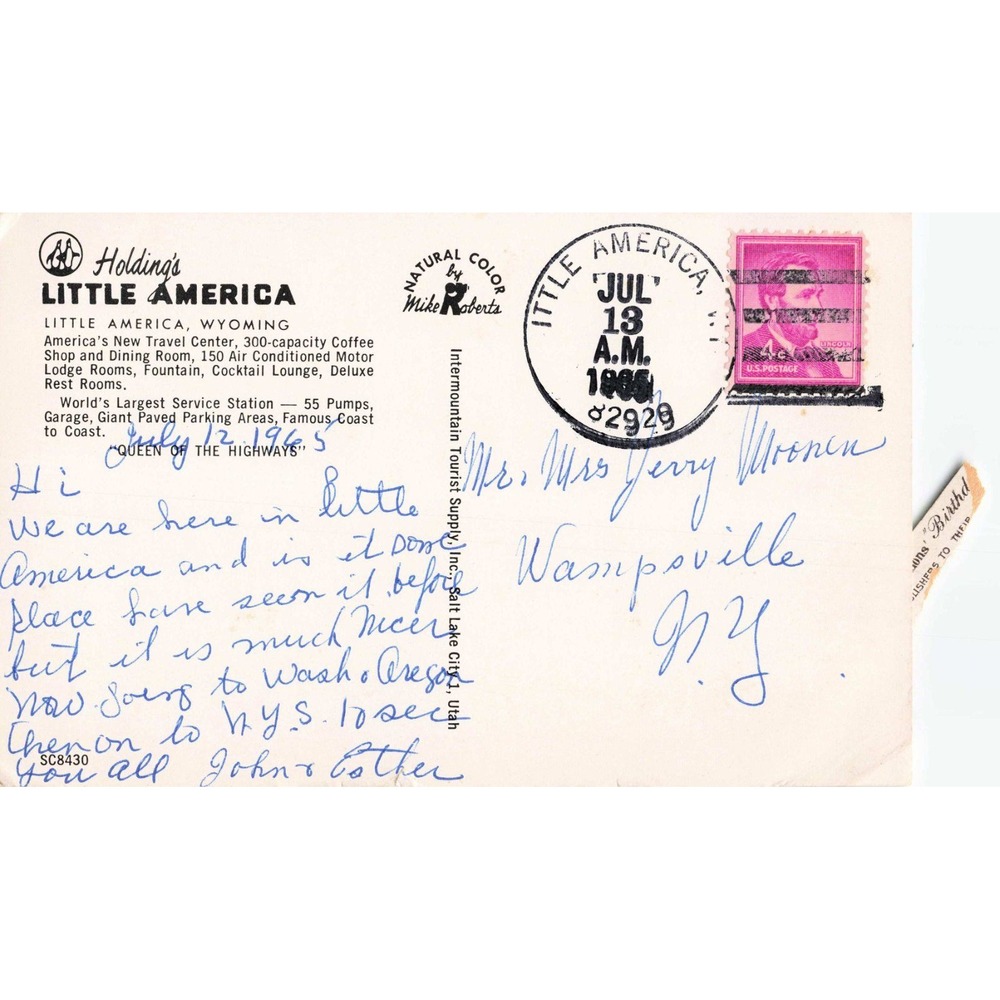 Holding's
LITTLE AMERICA
LITTLE AMERICA, WYOMING
America's New Travel Center, 300-capacity Coffee
Shop and Dining Room, 150 Air Conditioned Motor
Lodge Rooms, Fountain, Cocktail Lounge, Deluxe
Rest Rooms.
World's Largest Service Station — 55 Pumps,
Garage, Giant Paved Parking Areas, Famous Coast
to Coast.
"QUEEN OF THE HIGHWAYS"
July 12 1965
Hi
We are here in Little
America and is it some
place have seen it before
but it is much nicer
now going to Wash & Oregon
then on to N.Y.S. to see
you all John & Esther
SC8430
NATURAL COLOR
by
Mike Roberts
Intermountain Tourist Supply, Inc., Salt Lake City 1, Utah
ITTLE AMERICA, W
JUL
13
A.M.
1965
82929
4¢
LINCOLN
U.S. POSTAGE
Mr. Mrs Jerry Moonen
Wampsville
N.Y.
ons' "Birthd
USHERS TO THEIR